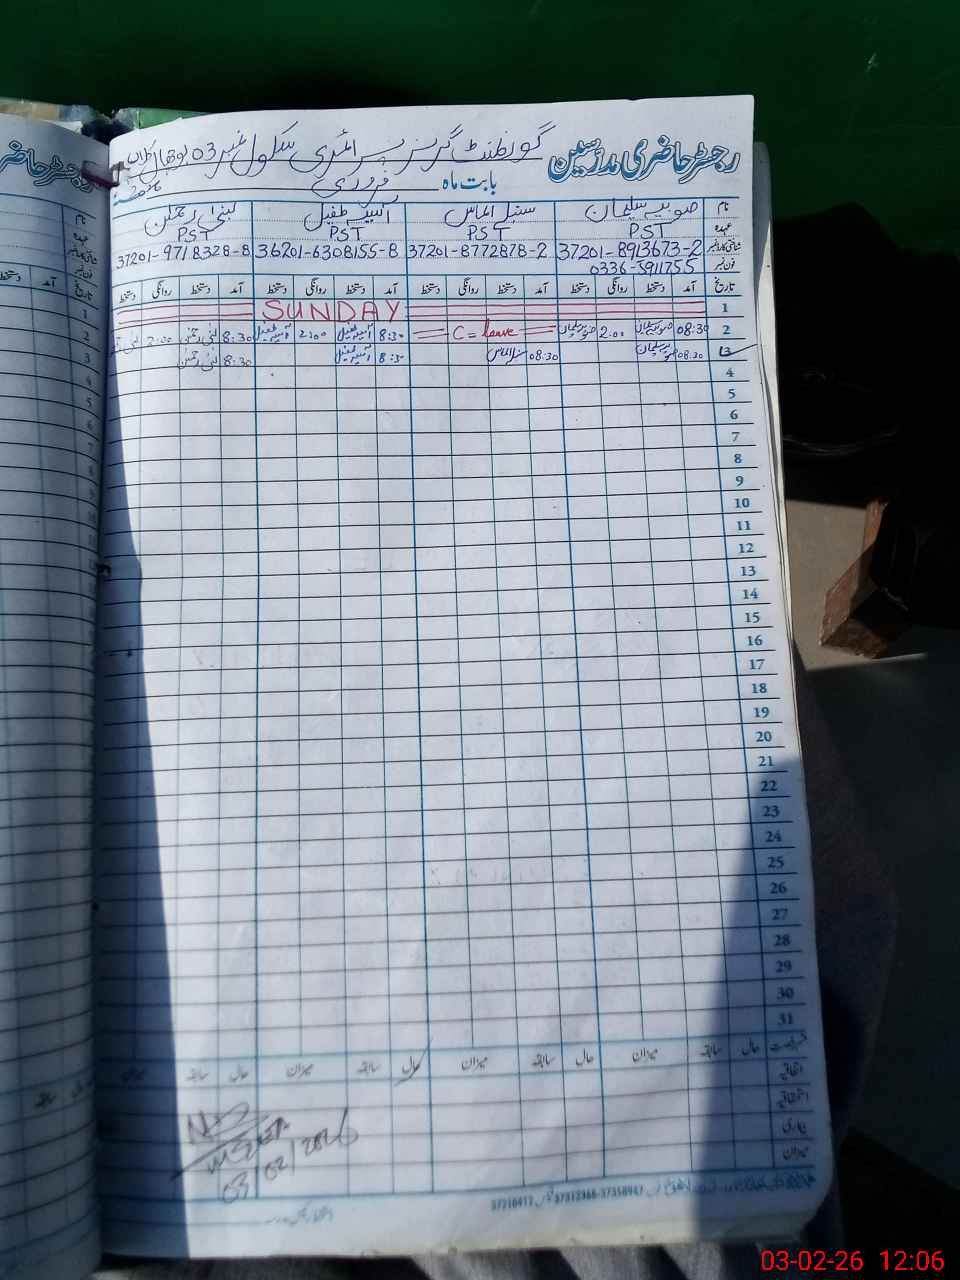 رجسٹر حاضری مدرسین گورنمنٹ گرلز پرائمری سکول نمبر 03 بوچھال کلاں
بابت ماہ فروری
نام صوبیہ سلیمان سنبل الماس آسیہ طفیل لبنیٰ رحمٰن
عہدہ PST PST PST PST
شناختی کارڈ نمبر 37201-8913673-2 37201-8772878-2 36201-6308155-8 37201-9718328-8
فون نمبر 0336-5911755
تاریخ آمد دستخط روانگی دستخط آمد دستخط روانگی دستخط آمد دستخط روانگی دستخط آمد دستخط روانگی دستخط
1 SUNDAY
2 08:30 صوبیہ سلیمان 2:00 صوبیہ سلیمان C = leave 8:30 آسیہ طفیل 2:00 آسیہ طفیل 8:30 لبنیٰ رحمٰن 2:00 لبنیٰ
3 08:30 صوبیہ سلیمان 08:30 سنبل الماس 8:30 آسیہ طفیل 8:30 لبنیٰ رحمٰن
4
5
6
7
8
9
10
11
12
13
14
15
16
17
18
19
20
21
22
23
24
25
26
27
28
29
30
31
حال سابقہ میزان حال سابقہ میزان حال سابقہ میزان حال سابقہ میزان
اتفاقیہ
استحقاقیہ
بیماری
میزان
03/02/2026
03-02-26 12:06